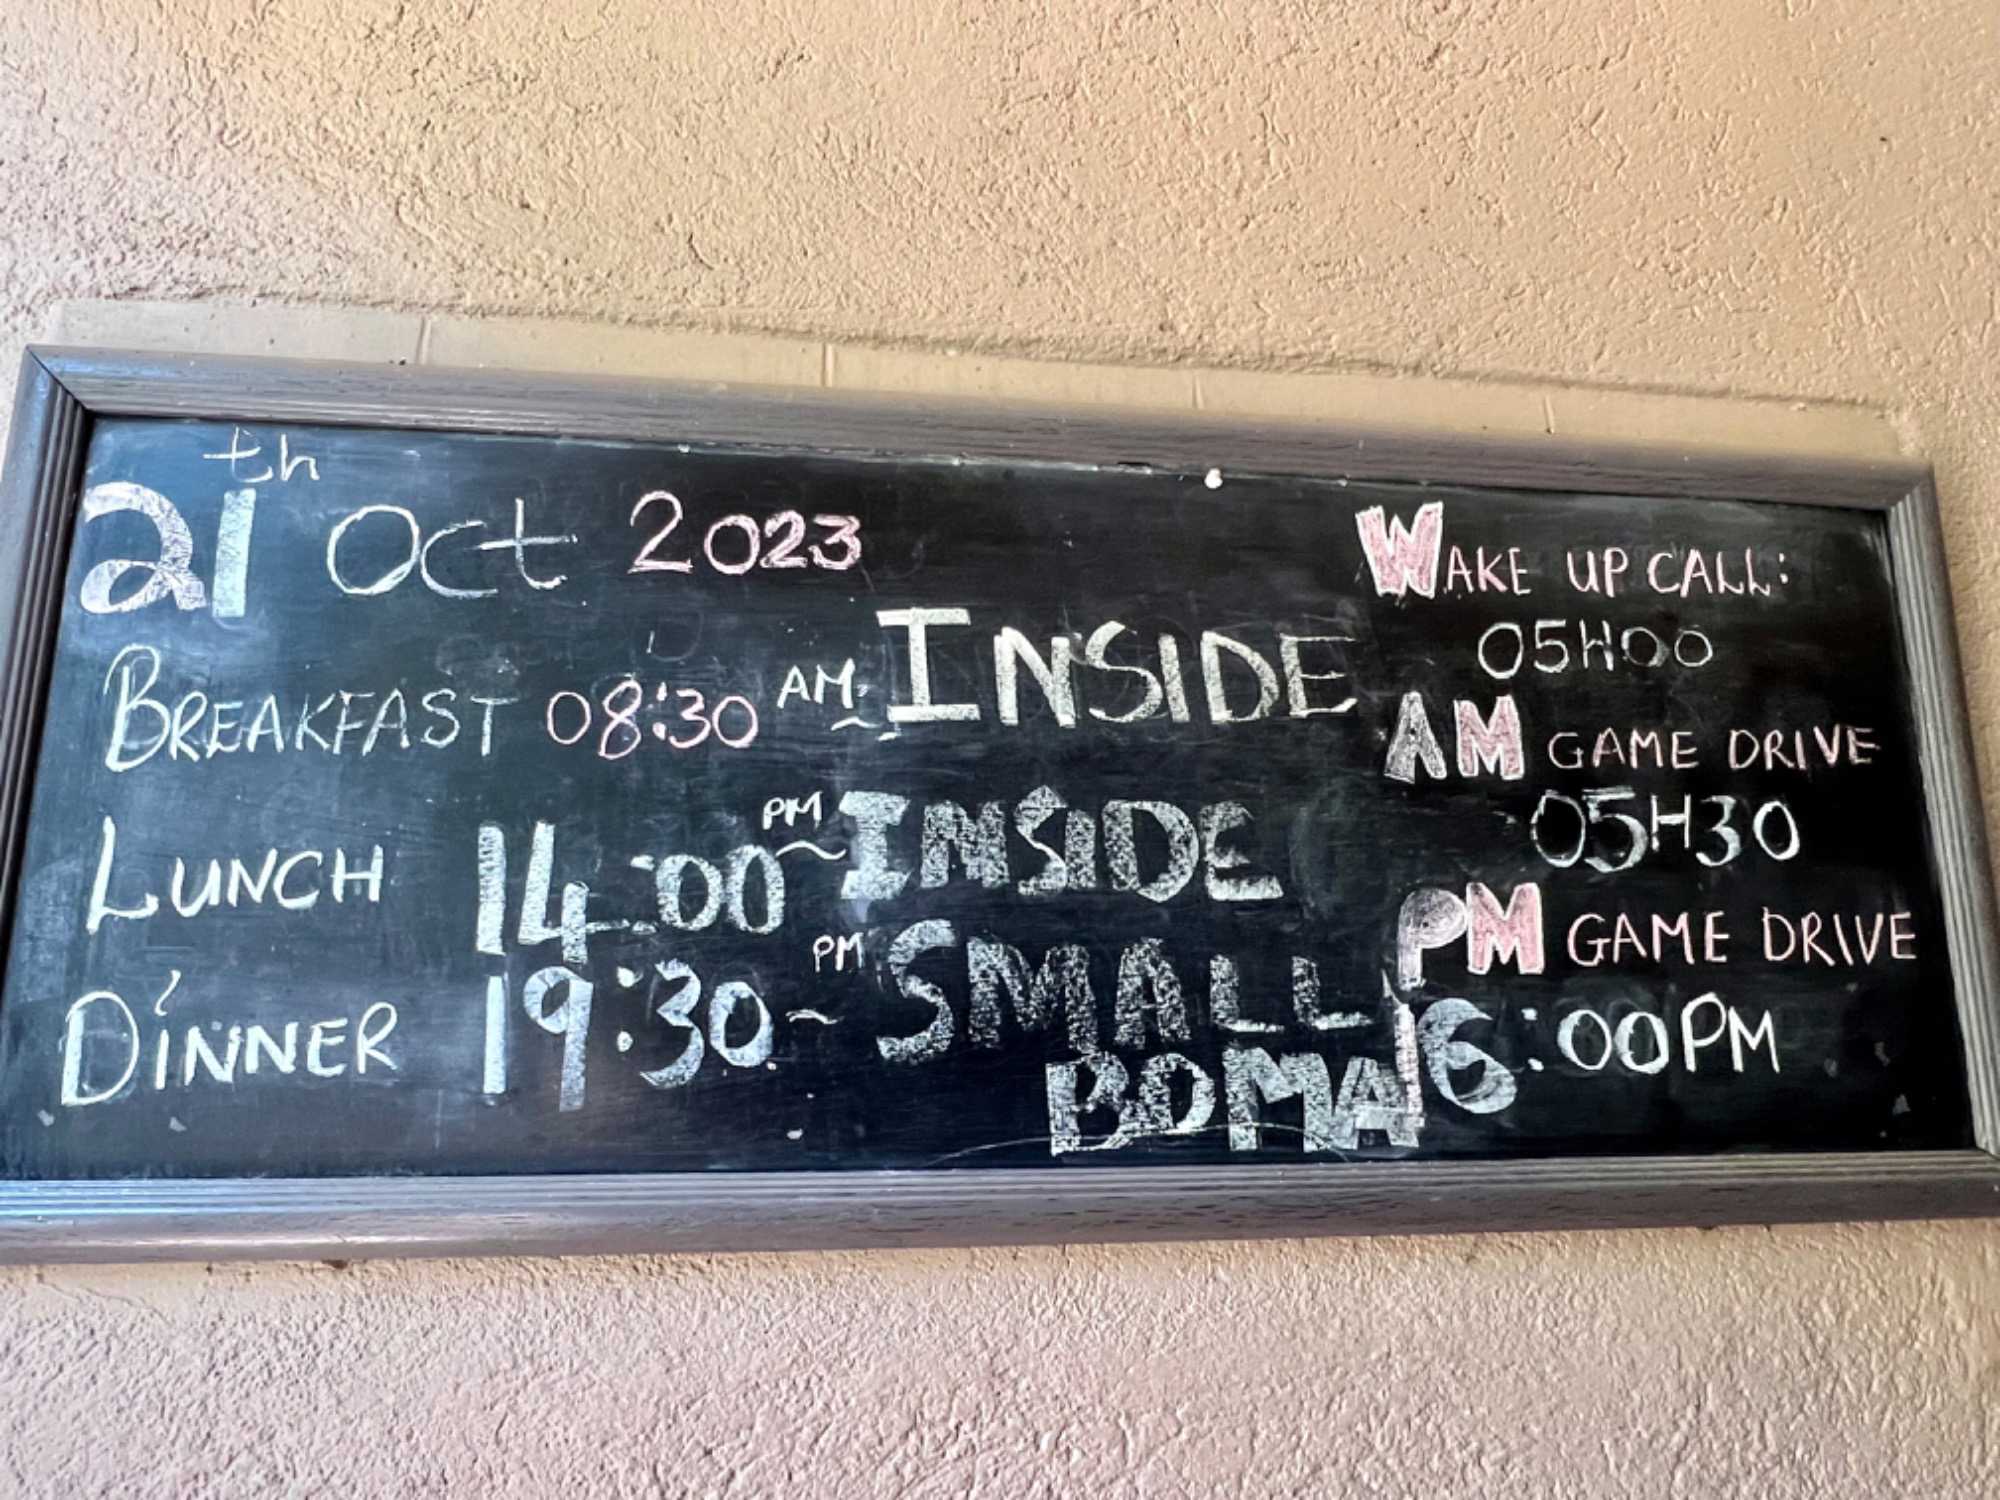 21th Oct 2023
BREAKFAST 08:30 AM ~ INSIDE
LUNCH 14:00 PM ~ INSIDE
DINNER 19:30 PM ~ SMALL
BOMA
WAKE UP CALL:
05H00
AM GAME DRIVE
05H30
PM GAME DRIVE
16:00PM